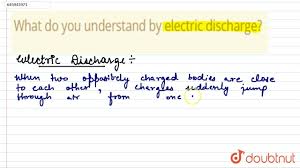 What do you understand by electric discharge?
Electric Discharge :-
When two oppositely charged bodies are close
to each other, charges suddenly jump
through air from one
doubtnut